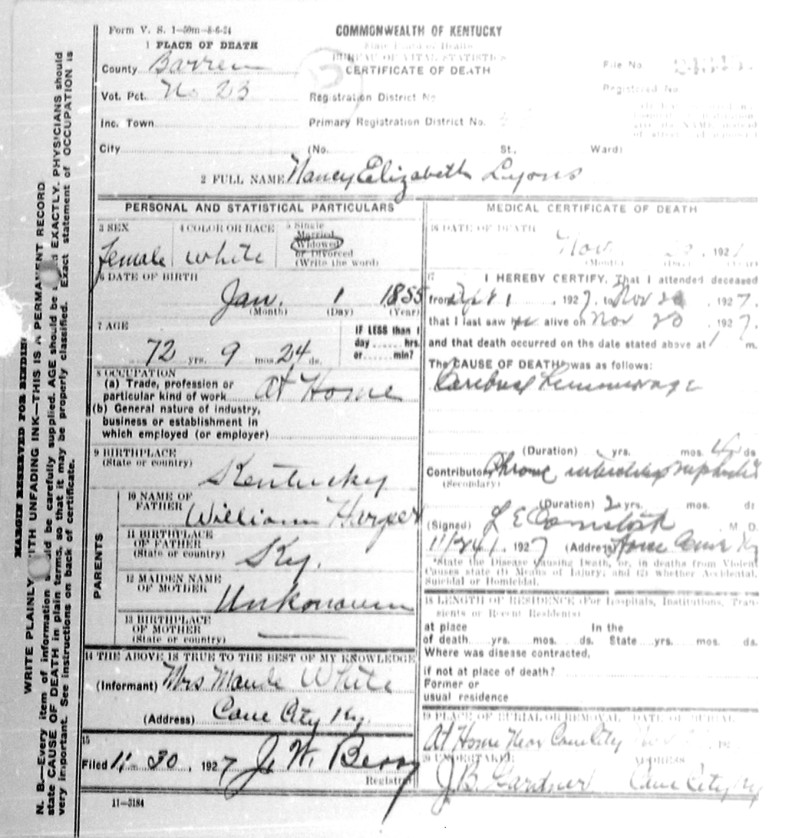 Form V. S. 1-50m-8-6-24
COMMONWEALTH OF KENTUCKY
1 PLACE OF DEATH
State Board of Health
BUREAU OF VITAL STATISTICS
County Barren
CERTIFICATE OF DEATH
File No.
Vot. Pct. No 23
Registration District No
Registered No.
Inc. Town
Primary Registration District No.
City
(No.
St.
Ward)
2 FULL NAME Nancy Elizabeth Lyons
PERSONAL AND STATISTICAL PARTICULARS
3 SEX
Female
4 COLOR OR RACE
white
5 Single
Married
Widowed
or Divorced
(Write the word)
6 DATE OF BIRTH
Jan. 1 1855
(Month) (Day) (Year)
7 AGE
72 yrs. 9 mos. 24 ds.
IF LESS than 1
day hrs.
or min?
8 OCCUPATION
(a) Trade, profession or
particular kind of work At Home
(b) General nature of industry,
business or establishment in
which employed (or employer)
9 BIRTHPLACE
(State or country)
Kentucky
PARENTS
10 NAME OF
FATHER William Harper
11 BIRTHPLACE
OF FATHER
(State or country) Ky.
12 MAIDEN NAME
OF MOTHER
Unknowen
13 BIRTHPLACE
OF MOTHER
(State or country)
14 THE ABOVE IS TRUE TO THE BEST OF MY KNOWLEDGE
(Informant) Mrs Maude White
(Address) Cave City Ky.
15
Filed 11-30, 1927 J. W. Berry
Registrar
11-3184
MEDICAL CERTIFICATE OF DEATH
16 DATE OF DEATH
Nov 192
(Month)
17 I HEREBY CERTIFY, That I attended deceased
from Sept 1, 1927, Nov 1927.
that I last saw alive on Nov 20 1927.
and that death occurred on the date stated above at m.
The CAUSE OF DEATH was as follows:
(Duration) yrs. mos. ds
Contributory
(Secondary)
(Duration) 2 yrs. mos. ds
(Signed) L E Comstock M. D.
11/24 1927 (Address)
*State the Disease Causing Death, or, in deaths from Violent
Causes state (1) Means of Injury; and (2) whether Accidental,
Suicidal or Homicidal.
18 LENGTH OF RESIDENCE (For Hospitals, Institutions, Transients
or Recent Residents)
at place In the
of death yrs. mos. ds. State yrs. mos. ds.
Where was disease contracted,
if not at place of death?
Former or
usual residence
19 PLACE OF BURIAL OR REMOVAL DATE OF BURIAL
At Home Near Cave City
20 UNDERTAKER ADDRESS
J. B. Gardner Cave City Ky
MARGIN RESERVED FOR BINDING
WRITE PLAINLY WITH UNFADING INK—THIS IS A PERMANENT RECORD
N. B.—Every item of information should be carefully supplied. AGE should be EXACTLY. PHYSICIANS should
state CAUSE OF DEATH in plain terms, so that it may be properly classified. Exact statement of OCCUPATION is
very important. See instructions on back of certificate.